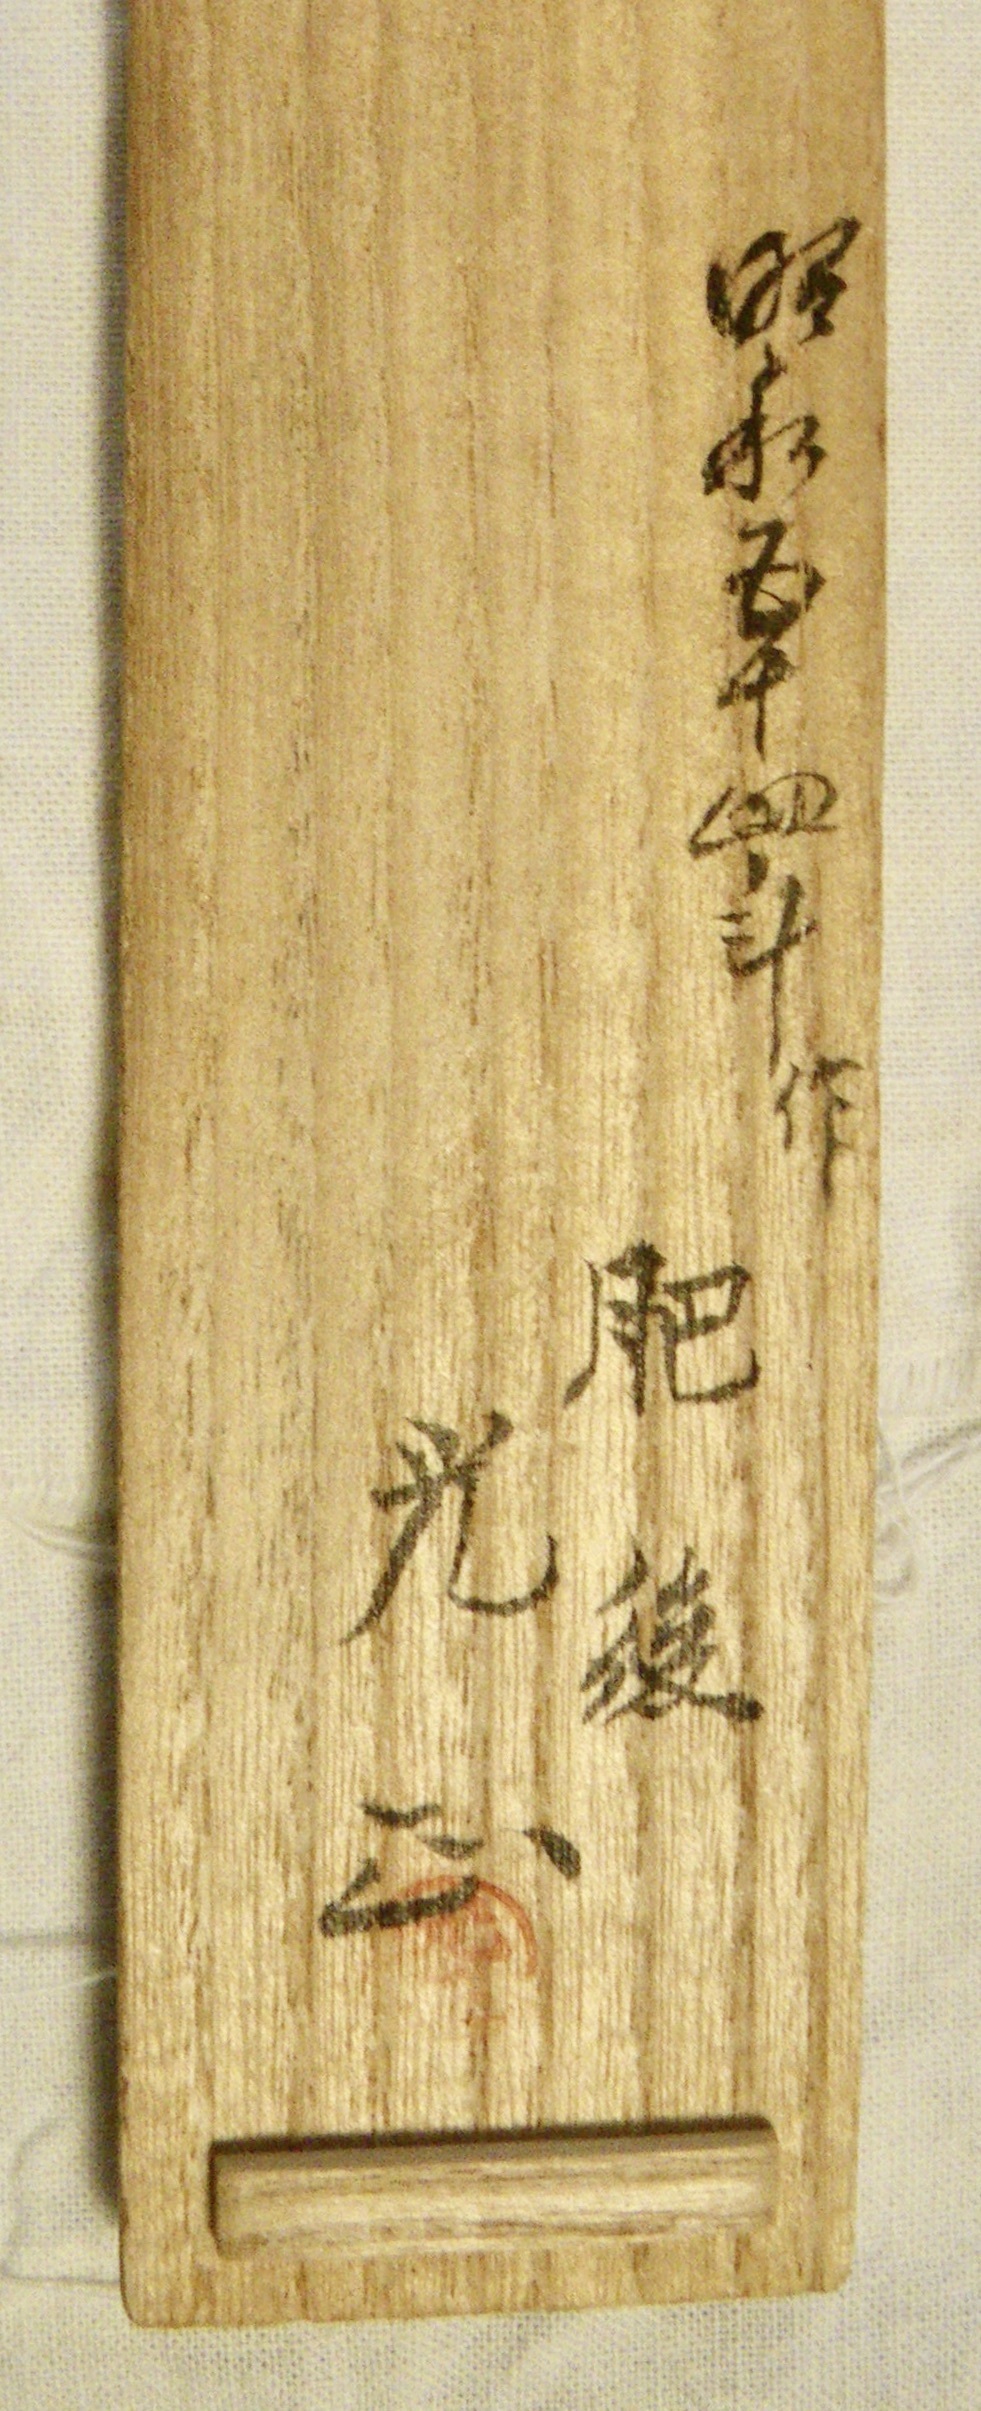 昭和五十四年作
肥後
光